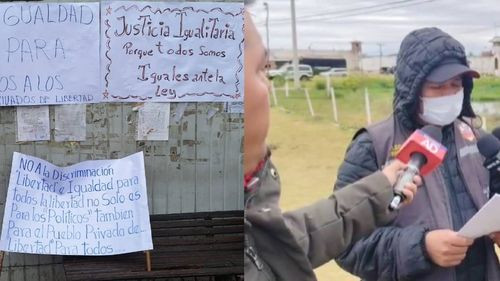 IGUALDAD
PARA
OS A LOS
PRIVADOS DE LIBERTAD
Justicia Igualitaria
Porque todos Somos
Iguales ante la
LEY
NO A la Discriminación
"Libertad e Igualdad para
todos la libertad no Solo es
Para los Politicos" Tambien
Para el Pueblo Privada de
Libertad" Para todos...